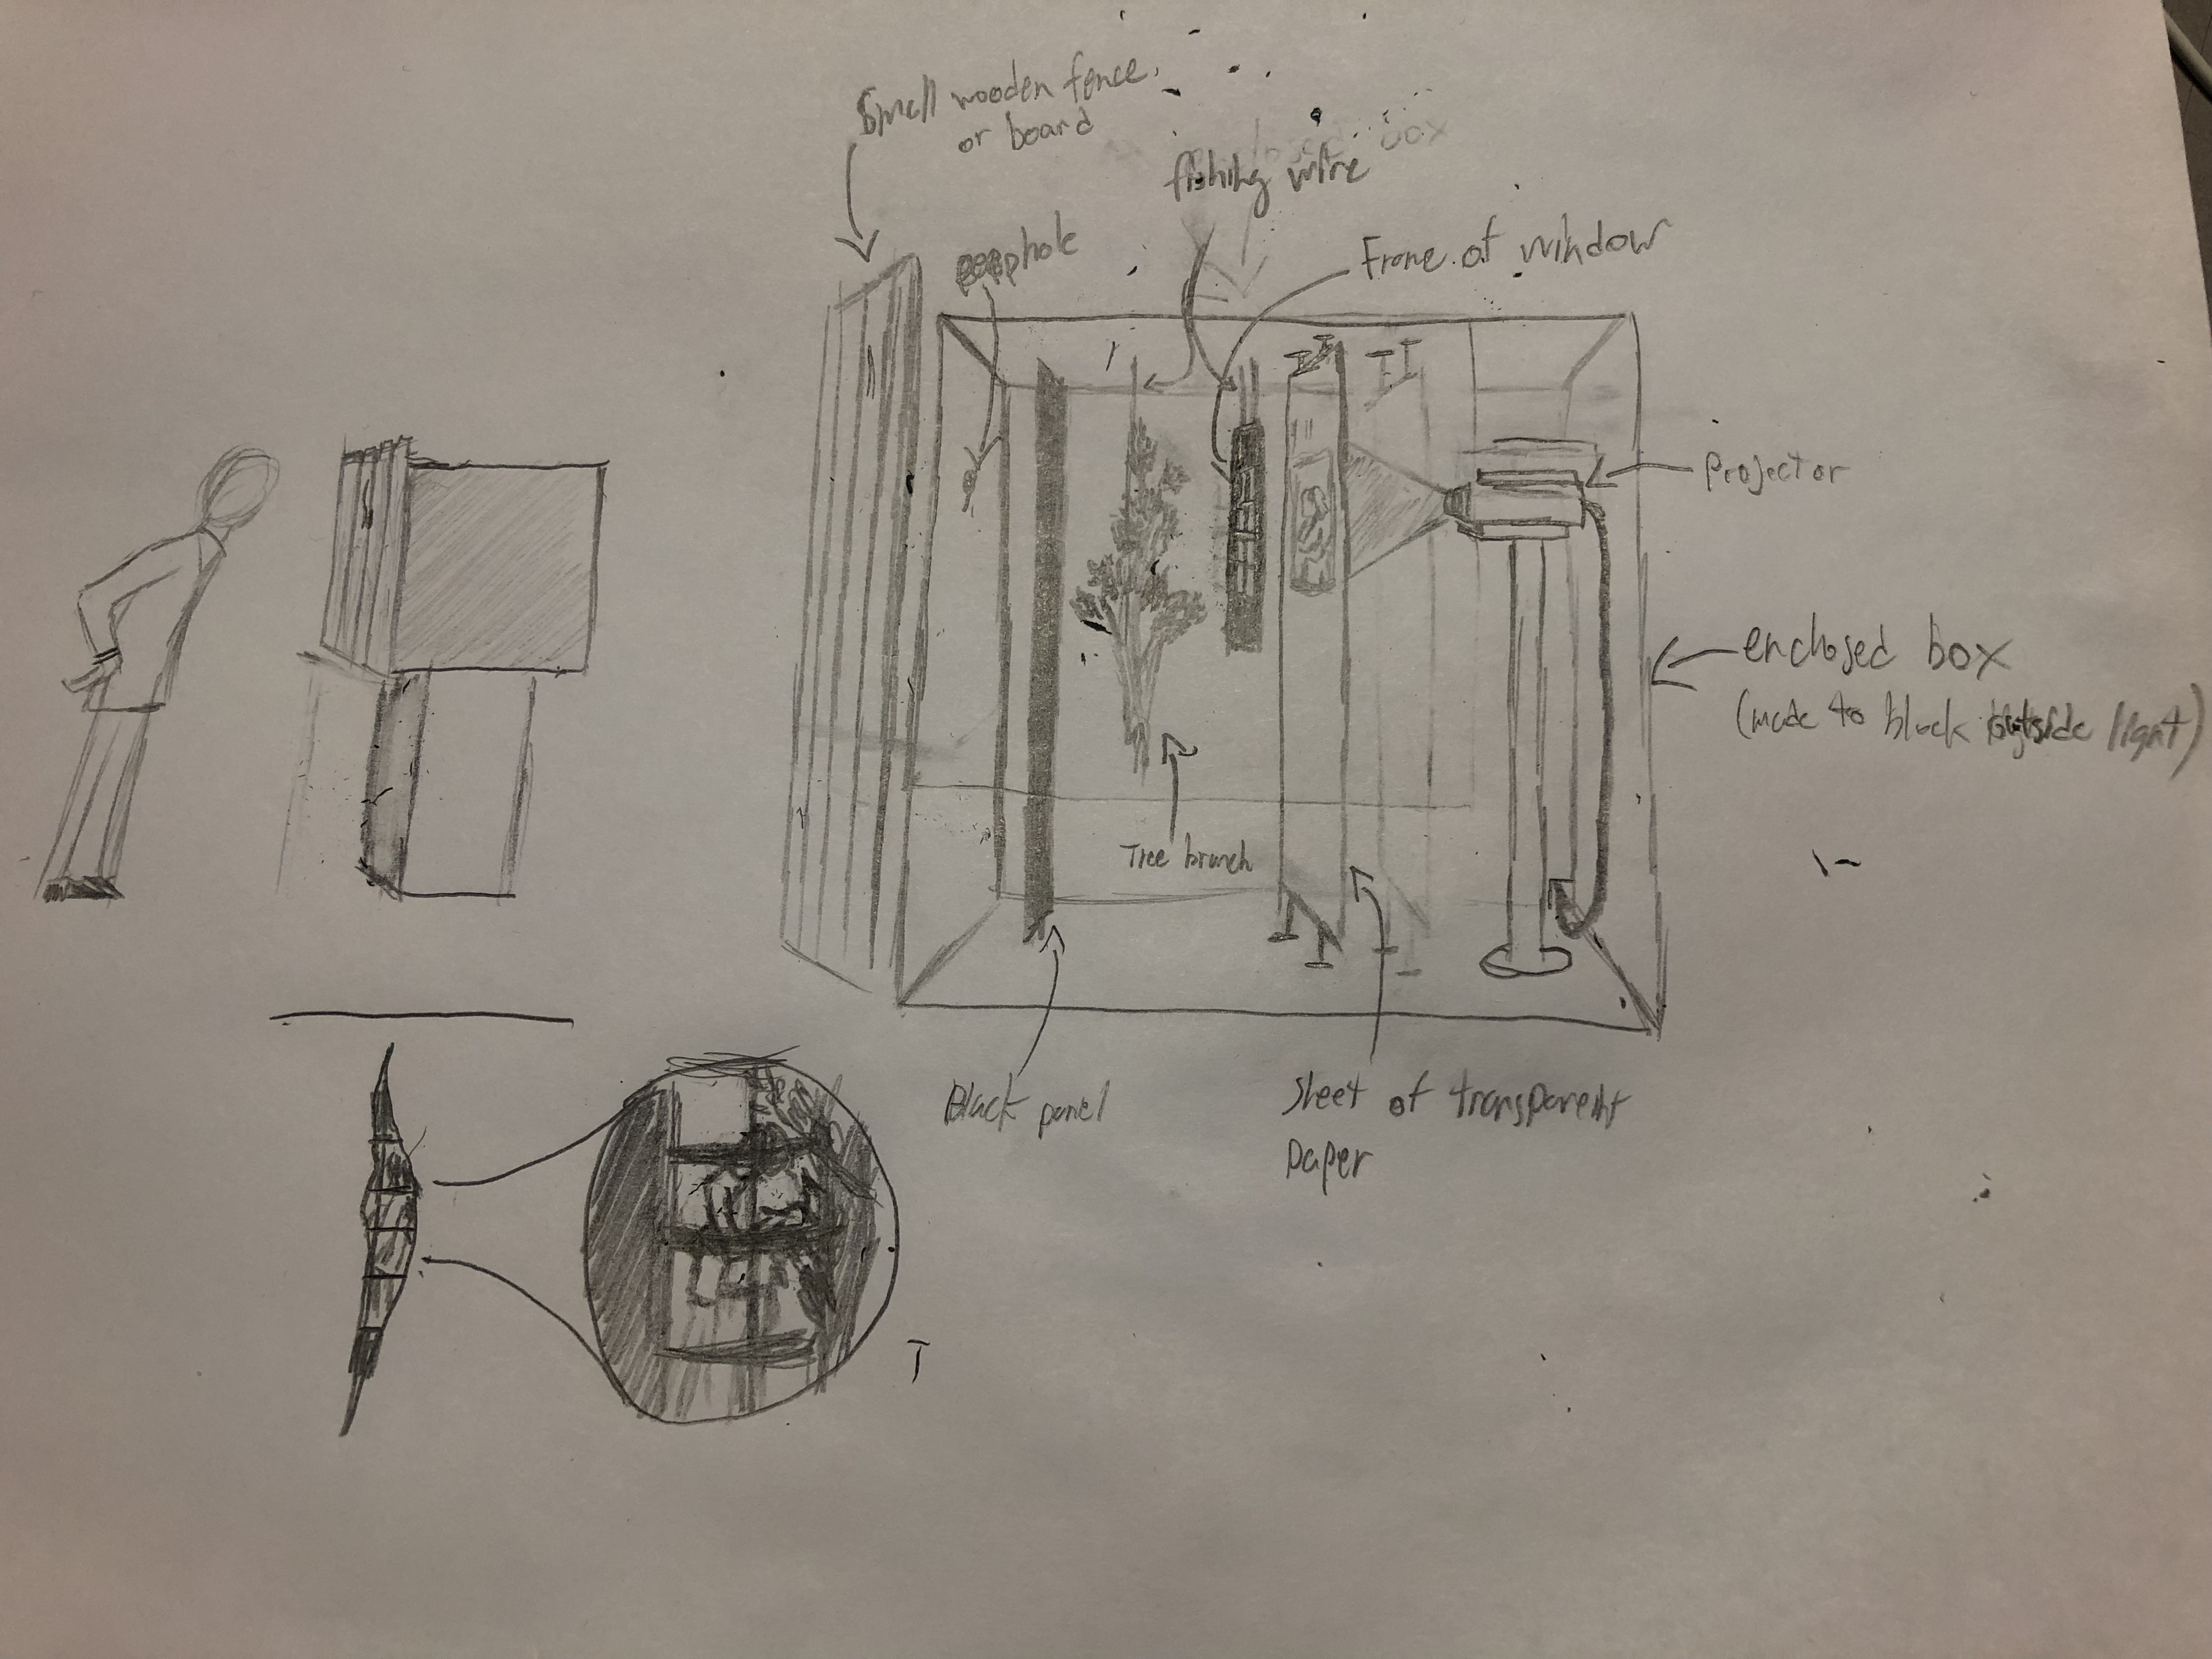 Small wooden fence
or board
fishing wire
box
peephole
Frame of window
Projector
enclosed box
(made to block outside light)
Tree branch
Black panel
Sheet of transparent
paper